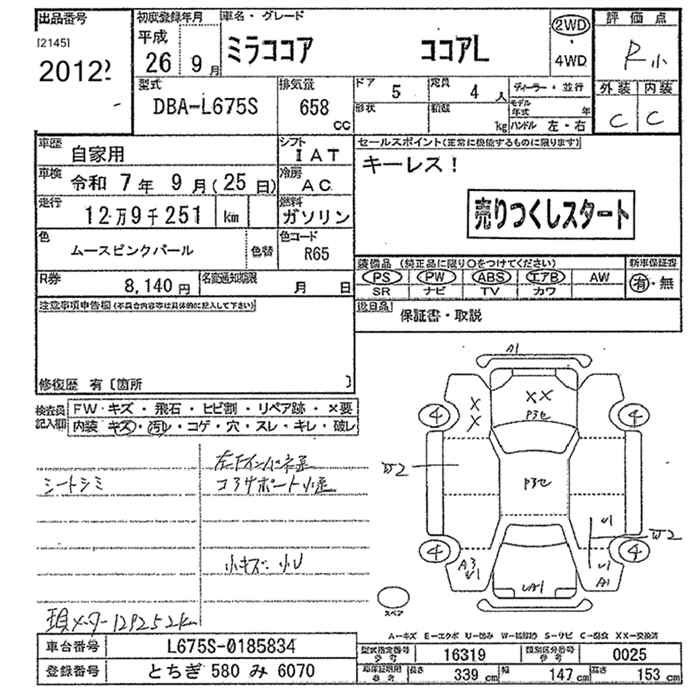 出品番号 初度登録年月 車名・グレード 2WD 評価点
[2145] 平成 ミラココア ココアL ・ R小
2012 26 9月 4WD
型式 排気量 ドア 5 定員 4 人 ディーラー・並行 外装 内装
DBA-L675S 658 cc 形状 積載 kg モデル年式 年 C C
ハンドル 左・右
車歴 自家用 シフト IAT セールスポイント(正常に機能するものに限ります)
車検 令和 7年 9月(25日) 冷房 AC キーレス!
走行 12万9千251 km 燃料 ガソリン 売りつくしスタート
色 ムースピンクパール 色替 色コード R65
装備品 (純正品に限り○をつけてください) 新車保証書
R券 8,140円 名変通知期限 月 日 PS PW ABS エアB AW 有・無
SR ナビ TV カワ
注意事項申告欄(不具合内容等は具体的に記入して下さい) 後日品 保証書・取説
修復歴 有〔箇所 〕
検査員記入欄 FW・キズ・飛石・ヒビ割・リペア跡・×要
内装・キズ・汚レ・コゲ・穴・スレ・キレ・破レ
A1
XX
XX
P3セ
4 4
W2
P3セ
U1
W2
4 4
A3
U1
UA1
A1
スペア
シートシミ
コアサポート小歪
小キズ・小U
現メーター129252km
A-キズ E-エクボ U-凹み W-補修跡 S-サビ C-腐食 XX-交換済
車台番号 L675S-0185834 型式指定番号 参考 16319 類別区分番号 参考 0025
登録番号 とちぎ 580 み 6070 車検証明用 参考 長さ 339 cm 幅 147 cm 高さ 153 cm